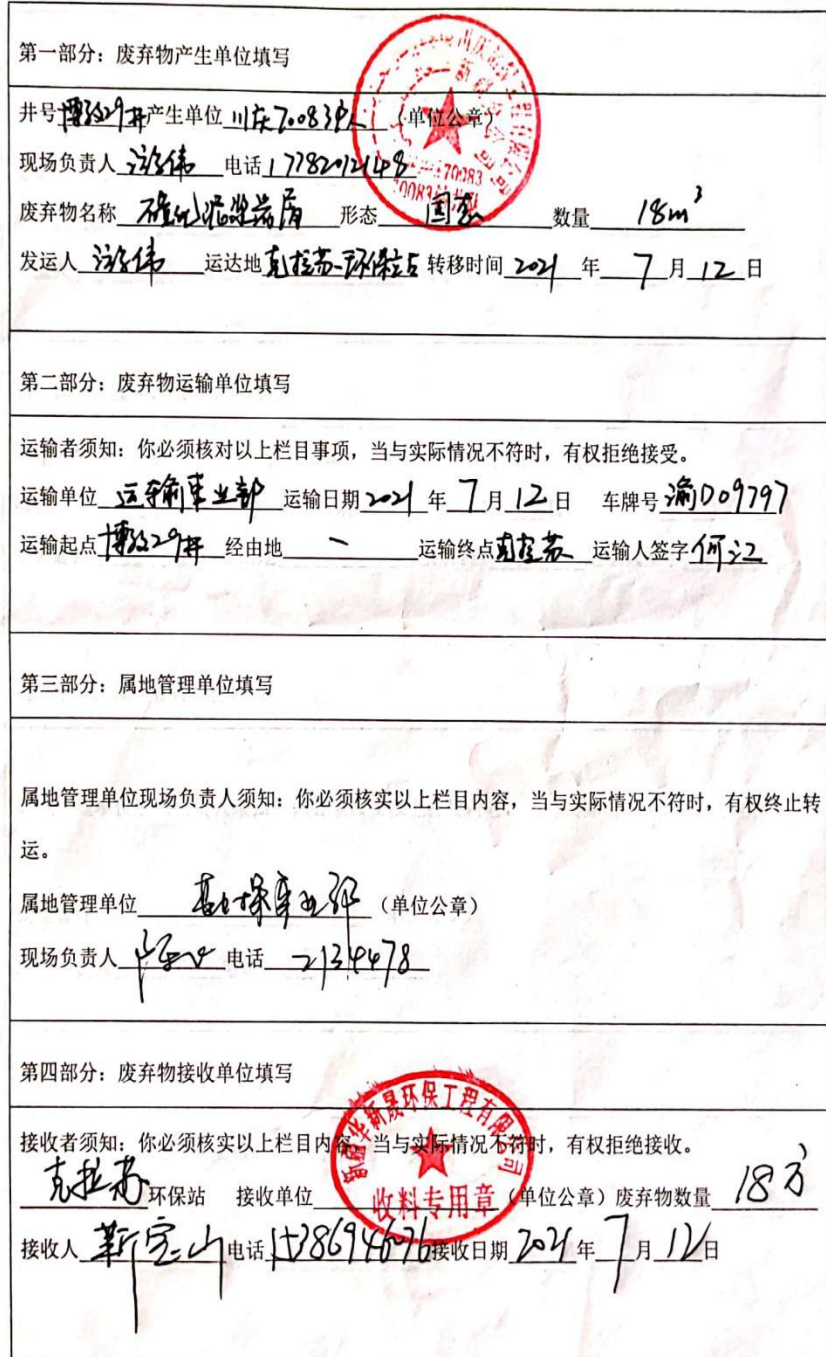 第一部分：废弃物产生单位填写
井号博孜29井产生单位川庆70083队（单位公章）
现场负责人 电话17782012148
废弃物名称磺化泥浆岩屑 形态固态 数量18m³
发运人 运达地克拉苏环保站转移时间2021年7月12日
第二部分：废弃物运输单位填写
运输者须知：你必须核对以上栏目事项，当与实际情况不符时，有权拒绝接受。
运输单位运输事业部运输日期2021年7月12日 车牌号渝D09797
运输起点博孜29井经由地一运输终点克拉苏运输人签字何江
第三部分：属地管理单位填写
属地管理单位现场负责人须知：你必须核实以上栏目内容，当与实际情况不符时，有权终止转
运。
属地管理单位 事业部（单位公章）
现场负责人 电话2134478
第四部分：废弃物接收单位填写
新疆华新晟环保工程有限公司
收料专用章
接收者须知：你必须核实以上栏目内容，当与实际情况不符时，有权拒绝接收。
克拉苏环保站 接收单位（单位公章）废弃物数量18方
接收人靳宝山电话 接收日期2021年7月12日